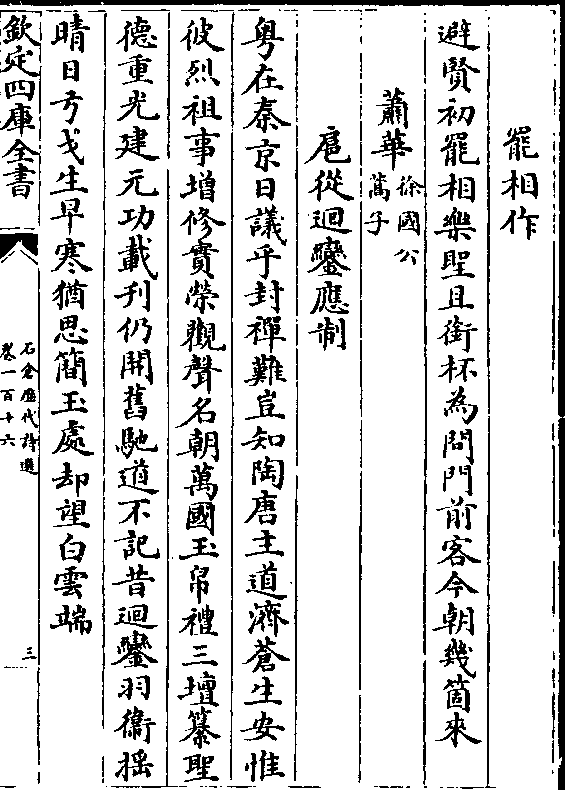 罷相作
避賢初罷相樂聖且銜杯為問門前客今朝幾箇來
蕭華徐國公嵩子
扈從迴鑾應制
粤在秦京日議乎封禪難豈知陶唐主道濟蒼生安惟
彼烈祖事增修實榮觀聲名朝萬國玉帛禮三壇纂聖
德重光建元功載刋仍開舊馳道不記昔迴鑾羽衛揺
晴日弓戈生早寒猶思簡玉處却望白雲端
欽定四庫全書
石倉歷代詩選
卷一百十六
三